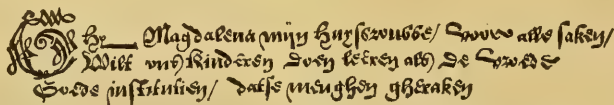 Ghy Magdalena mijn huysvrouwe / voor alle saken /
Wilt uus kinderen doen leeren als de vroede
Goede institutien / datse meughen gheraken